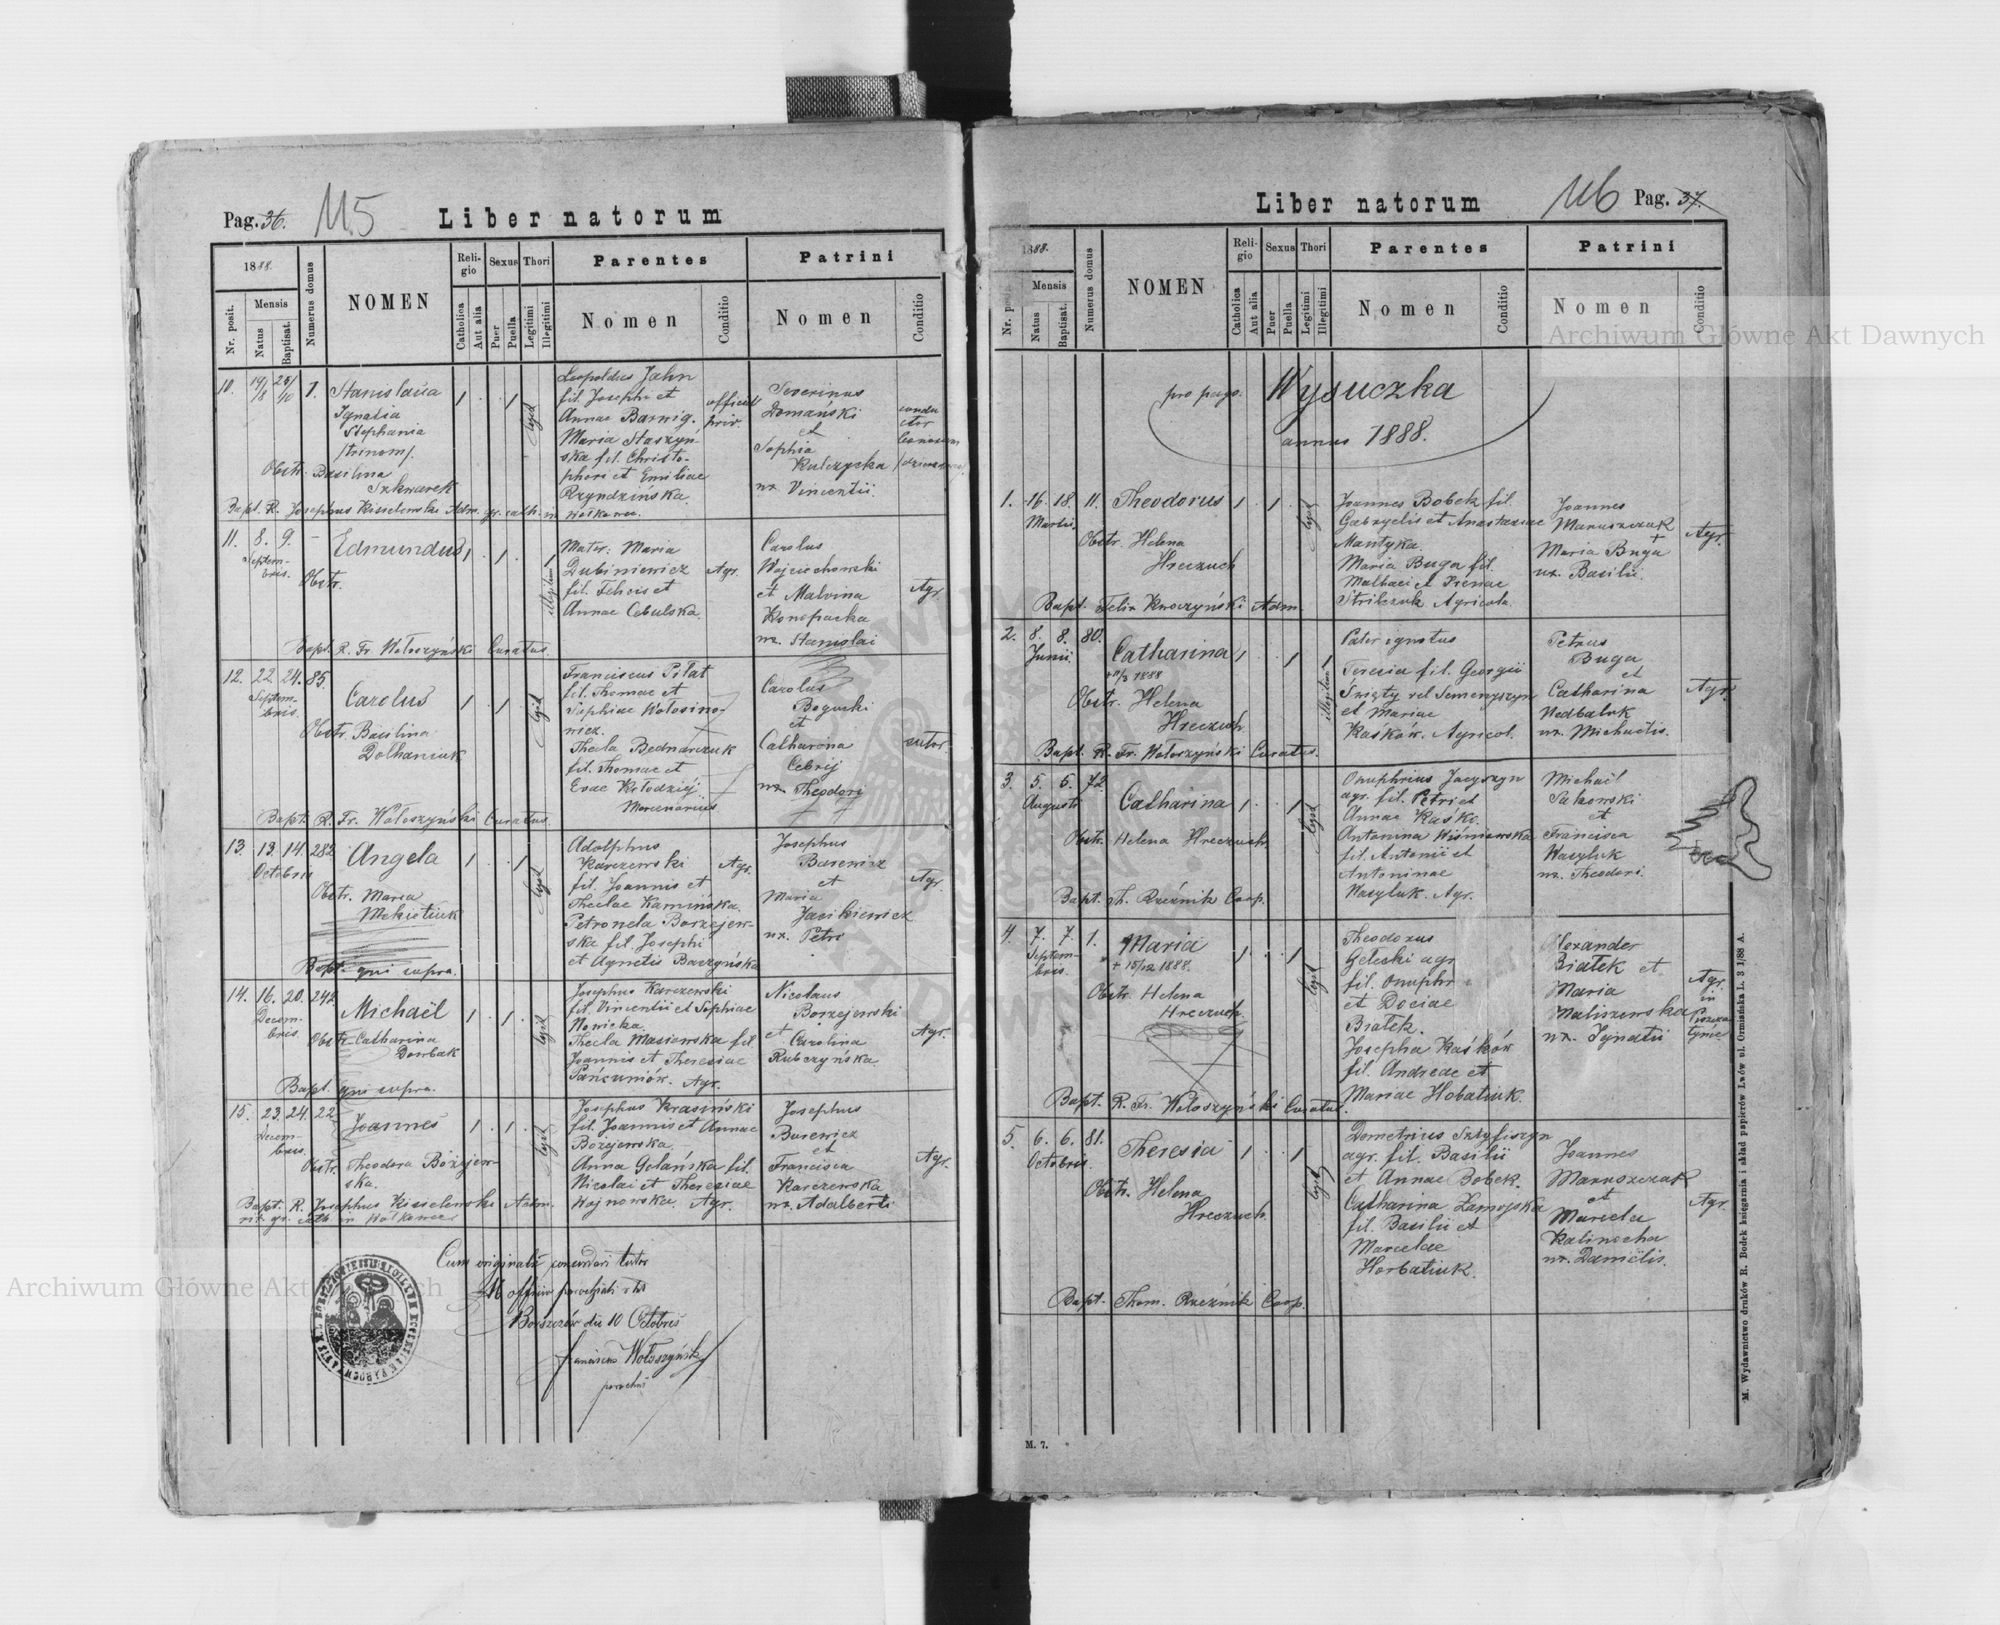 Pag. 36.
115
Liber natorum
1888.
Nr. posit.
Mensis
Natus
Baptisat.
Numerus domus
NOMEN
Religio
Catholica
Aut alia
Sexus
Puer
Puella
Thori
Legitimi
Illegitimi
Parentes
Nomen
Conditio
Patrini
Nomen
Conditio
10. 14/8 25/10 1. Stanislaüa
Ignatia
Stephania
/trinom/.
Obstr. Basilina
Szkwarek
1 1 legit
Leopoldus Jahn
fil. Josephi et
Annae Barnig.
Maria Staszyń-
ska fil. Christo-
phori et Emiliae
Rzyndzińska.
priv.
Severinus
Domański
et
Sophia
Kulczycka
ux. Vincentii
Bapt. R. Josephus Kisielewski Adm. gr. cath. in Wołkowce.
11. 8. 9. –
Septem-
bris.
Edmundus
Obstr.
1 1 illegitimi
Mater: Maria
Dubiniewicz
fil. Felicis et
Annae Cebulska.
Agr.
Carolus
Wojciechowski
et Malvina
Konopacka
ux. Stanislai
Agr.
Bapt. R. Fr. Wołoszyński Curatus.
12. 22. 24. 85.
Septem-
bris.
Carolus
Obstr. Basilina
Dolhaniuk
1 1 legit
Franciscus Pilat
fil. Thomae et
Sophiae Wolosino-
wicz.
Thecla Bednarczuk
fil. Thomae et
Evae Kołodziéj
Mercenarius
Carolus
Bogucki
et
Catharina
Cebrij
ux. Theodori
sutor.
Bapt. R. Fr. Wołoszyński Curatus.
13. 13. 14. 282
Octobris
Angela
Obstr. Maria
Mekietiuk
1 1 legit
Adolphus
Karczewski
fil. Joannis et
Theclae Kamińska.
Petronela Borzejew-
ska fil. Josephi
et Agnetis Barzyńska
Agr.
Josephus
Burewicz
et
Maria
Jasikiewicz
ux. Petri
Agr.
Bapt. qui supra.
14. 16. 20. 242.
Decem-
bris.
Michaël
Obstr. Catharina
Dowbak
1 1 legit
Josephus Karczewski
fil. Vincentii et Sophiae
Nowicka.
Thecla Masiowska fil.
Joannis et Theresiae
Pańczuniów. Agr.
Nicolaus
Borzejewski
et Carolina
Rubczyńska
Agr.
Bapt. qui supra.
15. 23. 24. 22.
Decem-
bris.
Joannes
Obstr. Theodora Bożejew-
ska.
1 1 legit
Josephus Krasiński
fil. Joannis et Annae
Bożejewska.
Anna Golańska fil.
Nicolai et Theresiae
Wojnowska. Agr.
Josephus
Burewicz
et
Francisca
Karczewska
ux. Adalberti
Agr.
Bapt. R. Josephus Kisielewski Adm.
rit. gr. cath. in Wołkowce
Cum originali
Ab officio parochiali r. lat
Borszczów die 10 Octobris
Franciscus Wołoszyński
parochus
Liber natorum
116
Pag. 37.
1888.
Nr. posit.
Mensis
Natus
Baptisat.
Numerus domus
NOMEN
Religio
Catholica
Aut alia
Sexus
Puer
Puella
Thori
Legitimi
Illegitimi
Parentes
Nomen
Conditio
Patrini
Nomen
Conditio
pro pago. Wysuczka
annus 1888.
1. 16. 18. 11.
Martii.
Theodorus
Obstr. Helena
Hreczuch
1 1 legit
Joannes Bobek fil.
Gabryelis et Anastasiae
Mantyka.
Maria Buga fil.
Mathaei et Irenae
Strilczuk Agricola.
Joannes
Maruszczak
+
Maria Buga
ux. Basilii.
Agr.
Bapt. Felix Kwoczyński Adm.
2. 8. 8. 80.
Junii.
Catharina
1888
Obstr. Helena
Hreczuch
1 1 illegitimi
Pater ignotus
Teresia fil. Georgii
Święty vel Semenyszyn
et Mariae
Kaśków. Agricol.
Petrus
Buga
et
Catharina
Nedbaluk
ux. Michaëlis.
Agr.
Bapt. R. Fr. Wołoszyński Curatus.
3. 5. 6. 72
Augusti
Catharina
Obstr. Helena Hreczuch.
1 1 legit
Onuphrius Jacyszyn
agr. fil. Petri et
Annae Kaśko.
Antonina Wiśniewska
fil. Antonii et
Antoninae
Wasyluk. Agr.
Michaël
Sakowski
et
Francisca
Wasyluk
ux. Theodori.
Bapt. Th. Rzeźnik Coop.
4. 7. 7. 1.
Septem-
bris.
Maria
+ 15/12 1888.
Obstr. Helena
Hreczuch.
1 1 legit
Theodorus
Geleski agr
fil. Onuphr
et Dociae
Białek.
Josepha Kaśków
fil. Andreae et
Mariae Hobatiuk.
Alexander
Białek et
Maria
Maliszewska
ux. Ignatii
Agr.
in
Bapt. R. Fr. Wołoszyński Curatus.
5. 6. 6. 81.
Octobris.
Theresia
Obstr. Helena
Hreczuch.
1 1 legit
Demetrius Sztyfiszyn
agr. fil. Basilii
et Annae Bobek.
Catharina Zamojska
fil. Basilii et
Marcelae
Horbatiuk.
Joannes
Maruszczak
et
Marcela
Kalinocha
ux. Daniëlis.
Agr.
Bapt. Thom. Rzeźnik Coop.
M. 7.
M. Wydawnictwo druków R. Bodek księgarnia i skład papierów Lwów ul. Ormiańska L. 3 1/88 A.
Archiwum Główne Akt Dawnych
Archiwum Główne Akt Dawnych